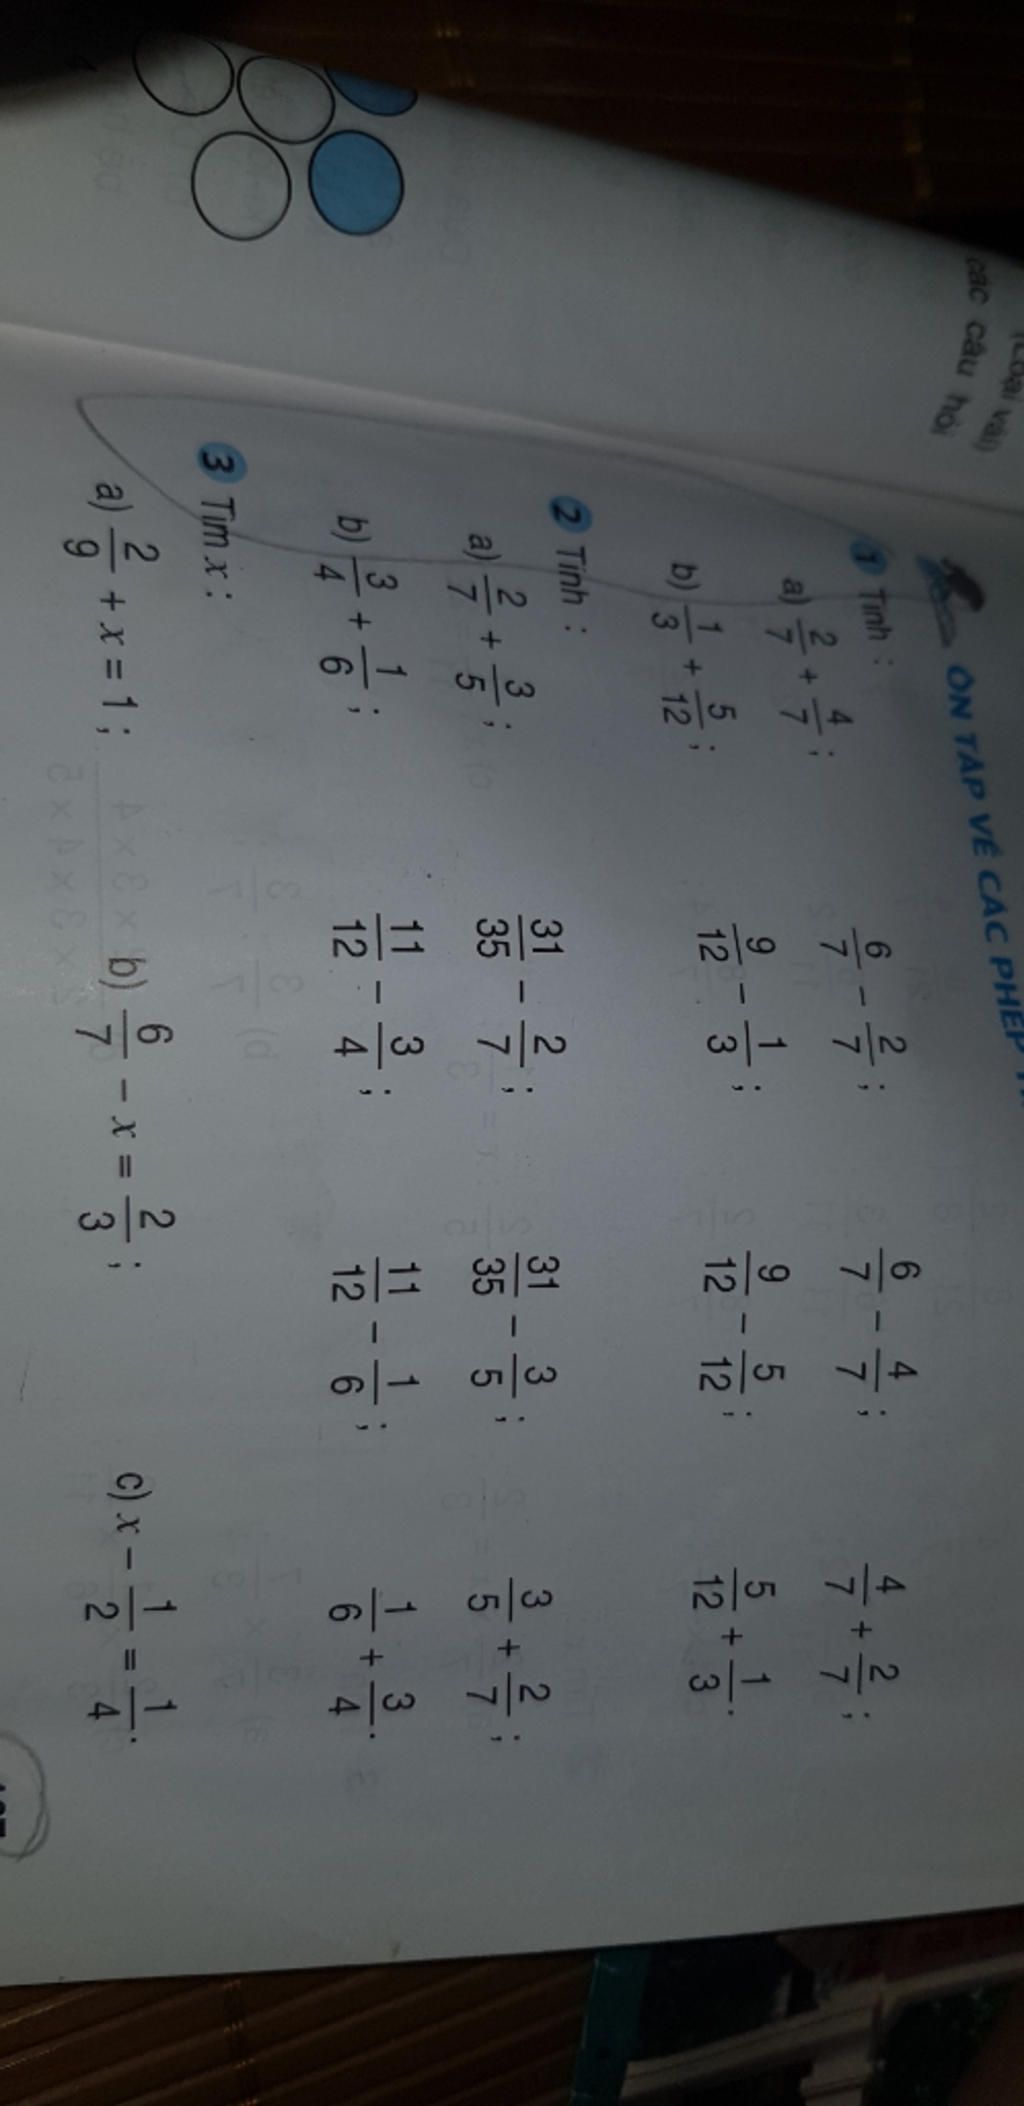 các câu hỏi
ÔN TẬP VỀ CÁC PHÉP
1 Tính :
a) 2/7 + 4/7 ; 6/7 - 2/7 ; 6/7 - 4/7 ; 4/7 + 2/7 ;
b) 1/3 + 5/12 ; 9/12 - 1/3 ; 9/12 - 5/12 ; 5/12 + 1/3 .
2 Tính :
a) 2/7 + 3/5 ; 31/35 - 2/7 ; 31/35 - 3/5 ; 3/5 + 2/7 ;
b) 3/4 + 1/6 ; 11/12 - 3/4 ; 11/12 - 1/6 ; 1/6 + 3/4 .
3 Tìm x :
a) 2/9 + x = 1 ; b) 6/7 - x = 2/3 ; c) x - 1/2 = 1/4 .